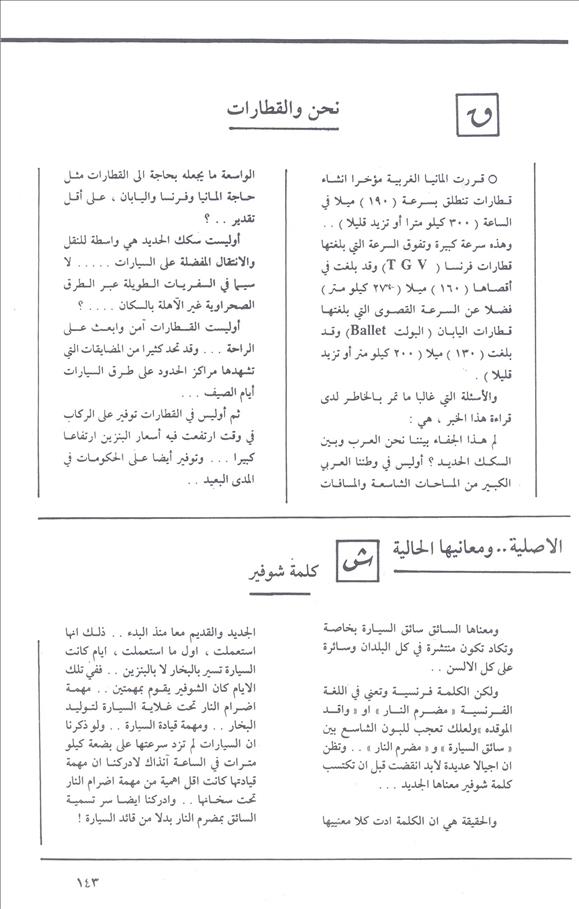 ق
نحن والقطارات
○ قررت المانيا الغربية مؤخرا انشاء
قطارات تنطلق بسرعة ( ١٩٠ ) ميلا في
الساعة ( ٣٠٠ كيلو مترا أو تزيد قليلا ) . .
وهذه سرعة كبيرة وتفوق السرعة التي بلغتها
قطارات فرنسا ( T G V ) وقد بلغت في
أقصاها ( ١٦٠ ) ميلا ( ٢٧٤ كيلو متر )
فضلا عن السرعة القصوى التي بلغتها
قطارات اليابان ( البولت Ballet) وقد
بلغت ( ١٣٠ ) ميلا ( ٢٠٠ كيلو متر أو تزيد
قليلا ) .
والأسئلة التي غالبا ما تمر بالخاطر لدى
قراءة هذا الخبر ، هي :
لم هذا الجفاء بيننا نحن العرب وبين
السكك الحديد ؟ أوليس في وطننا العربي
الكبير من المساحات الشاسعة والمسافات
الواسعة ما يجعله بحاجة الى القطارات مثل
حاجة المانيا وفرنسا واليابان ، على أقل
تقدير . . ؟
أوليست سكك الحديد هي واسطة للنقل
والانتقال المفضلة على السيارات . . . . . لا
سيما في السفريات الطويلة عبر الطرق
الصحراوية غير الآهلة بالسكان . . . . ؟
أوليست القطارات آمن وابعث على
الراحة . . . وقد تحد كثيرا من المضايقات التي
تشهدها مراكز الحدود على طرق السيارات
أيام الصيف . . .
ثم أوليس في القطارات توفير على الركاب
في وقت ارتفعت فيه أسعار البنزين ارتفاعا
كبيرا . . . وتوفير أيضا على الحكومات في
المدى البعيد . .
الاصلية .. ومعانيها الحالية
ش
كلمة شوفير
ومعناها السائق سائق السيارة بخاصة
وتكاد تكون منتشرة في كل البلدان وسائرة
على كل الالسن . .
ولكن الكلمة فرنسية وتعني في اللغة
الفرنسية « مضرم النار » او « واقد
الموقده » ولعلك تعجب للبون الشاسع بين
« سائق السيارة » و « مضرم النار » . . وتظن
ان اجيالا عديدة لابد انقضت قبل ان تكتسب
كلمة شوفير معناها الجديد . . .
والحقيقة هي ان الكلمة ادت كلا معنييها
الجديد والقديم معا منذ البدء . . ذلك انها
استعملت ، اول ما استعملت ، ايام كانت
السيارة تسير بالبخار لا بالبنزين . . ففي تلك
الايام كان الشوفير يقوم بمهمتين . . مهمة
اضرام النار تحت غلاية السيارة لتوليد
البخار . . ومهمة قيادة السيارة . . ولو ذكرنا
ان السيارات لم تزد سرعتها على بضعة كيلو
مترات في الساعة آنذاك لادركنا ان مهمة
قيادتها كانت اقل اهمية من مهمة اضرام النار
تحت سخانها . . وادركنا ايضا سر تسمية
السائق بمضرم النار بدلا من قائد السيارة !
١٤٣